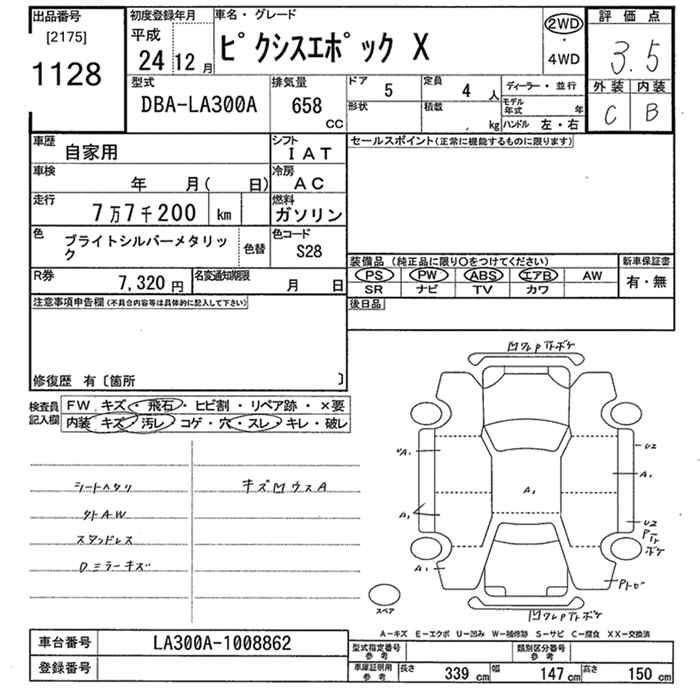 出品番号
[2175]
1128
初度登録年月
平成
24年12月
車名・グレード
ピクシスエポック X
2WD
・
4WD
評価点
3.5
外装 内装
C B
型式
DBA-LA300A
排気量
658
CC
ドア
5
定員
4 人
形状
積載
kg
ディーラー・並行
モデル年式 年
ハンドル 左・右
車歴
自家用
シフト
IAT
車検
年 月( 日)
冷房
AC
走行
7万7千200 km
燃料
ガソリン
色
ブライトシルバーメタリック
色替
色コード
S28
R券
7,320円
名変通知期限
月 日
セールスポイント(正常に機能するものに限ります)
装備品 (純正品に限り○をつけてください)
PS PW ABS エアB AW
SR ナビ TV カワ
新車保証書
有・無
後日品
注意事項申告欄(不具合内容等は具体的に記入して下さい)
修復歴 有〔箇所 〕
検査員記入欄
FW キズ・飛石・ヒビ割・リペア跡・×要
内装 キズ・汚レ・コゲ・穴・スレ・キレ・破レ
シートヘタリ
キズMウスA
外AW
スタッドレス
Dミラーキズ
A1
A1
A1
A1
A1
U2
U2
スペア
A－キズ E－エクボ U－凹み W－補修跡 S－サビ C－腐食 XX－交換済
車台番号
LA300A-1008862
登録番号
型式指定番号
参考
類別区分番号
参考
車庫証明用
参考
長さ 339 cm
幅 147 cm
高さ 150 cm